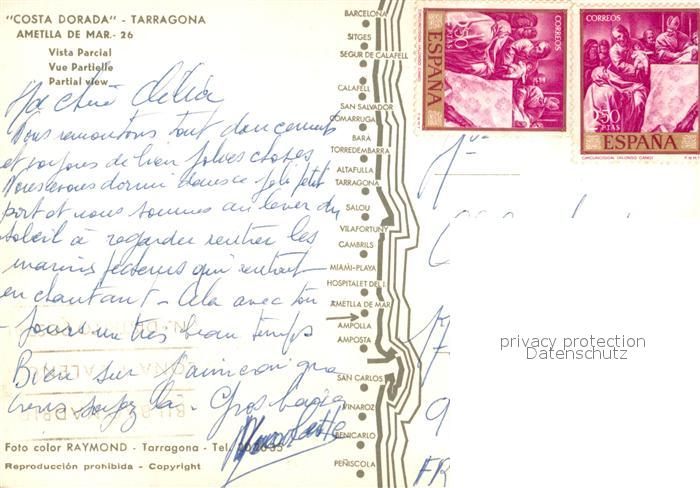 "COSTA DORADA" - TARRAGONA
AMETLLA DE MAR.- 26
Vista Parcial
Vue Partielle
Partial view
Ma chère
Nous remontons tout doucement
et voyons de bien jolies choses
Nous avons dormi dans ce joli petit
port et nous sommes au lever du
soleil à regarder rentrer les
marins pêcheurs qui rentrent
en chantant - Cela avec tou
- jours un très beau temps
Bien sur j'aimerais que
vous soyez là. Gros baisers
Foto color RAYMOND - Tarragona - Tel.
Reproducción prohibida - Copyright
BARCELONA
SITGES
SEGUR DE CALAFELL
CALAFELL
SAN SALVADOR
COMARRUGA
BARA
TORREDEMBARRA
ALTAFULLA
TARRAGONA
SALOU
VILAFORTUNY
CAMBRILS
MIAMI-PLAYA
HOSPITALET DEL I.
AMETLLA DE MAR
AMPOLLA
AMPOSTA
SAN CARLOS
VINAROZ
BENICARLO
PEÑISCOLA
CORREOS
2'50 PTAS
ESPAÑA
CORREOS
2'50 PTAS
ESPAÑA
CIRCUNCISION (ALONSO CANO)
privacy protection
Datenschutz
FR